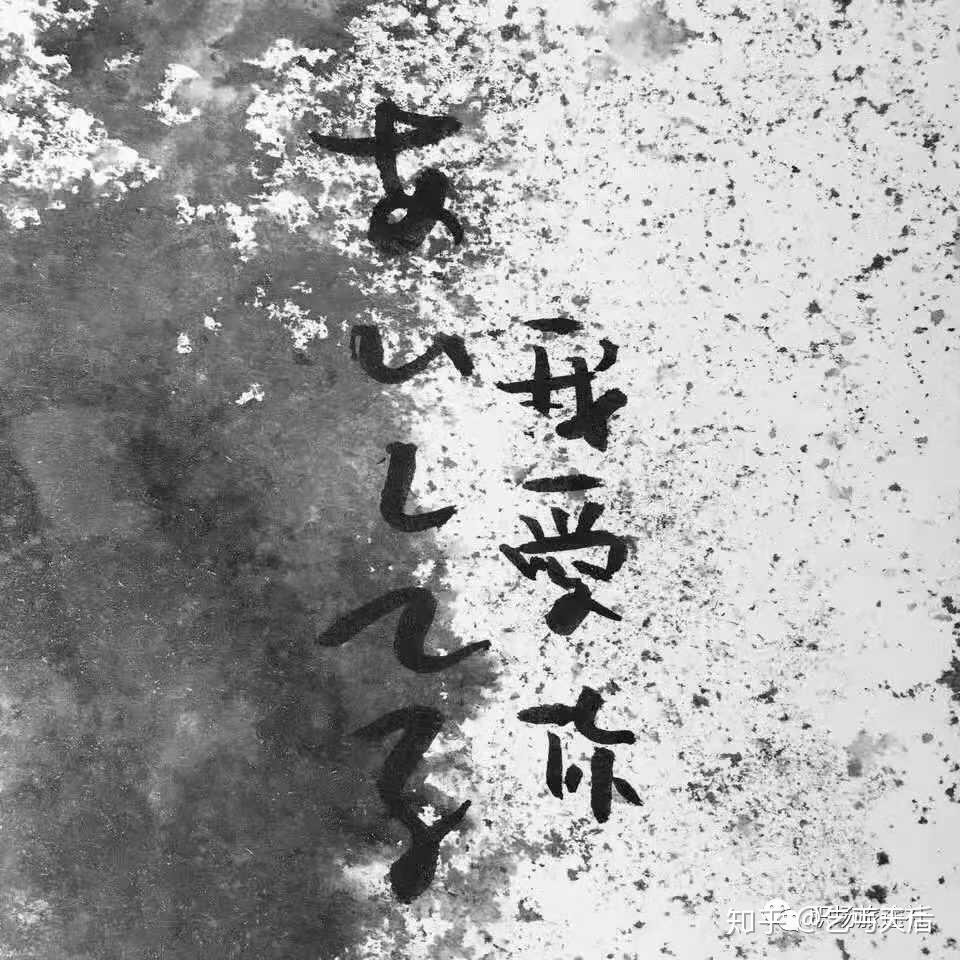 我愛你
あいしてる
知乎